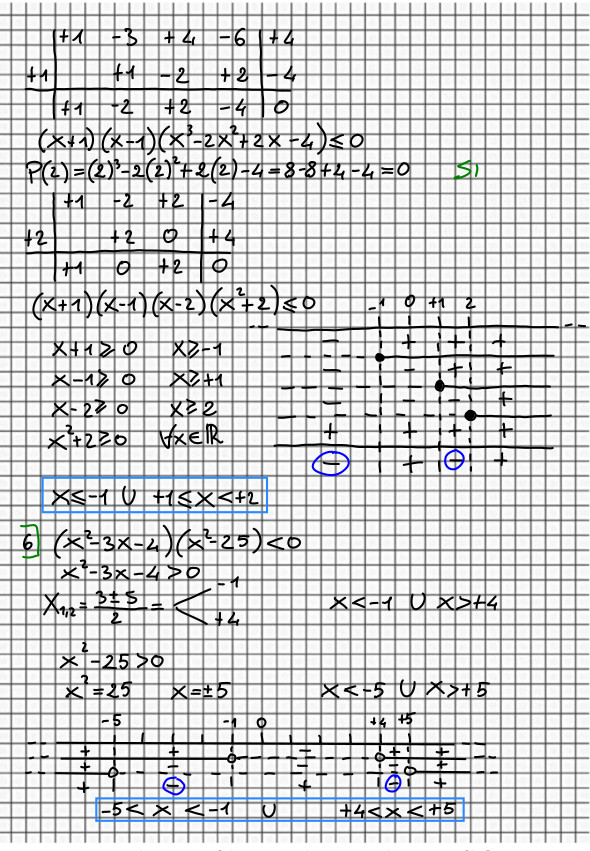 +1 -3 +4 -6 +4
+1 +1 -2 +2 -4
+1 -2 +2 -4 0
(x+1)(x-1)(x³-2x²+2x-4)≤0
P(2)=(2)³-2(2)²+2(2)-4=8-8+4-4=0 SI
+1 -2 +2 -4
+2 +2 0 +4
+1 0 +2 0
(x+1)(x-1)(x-2)(x²+2)≤0
-1 0 +1 2
x+1≥0 x≥-1
- + + +
x-1≥0 x≥+1
- - + +
x-2≥0 x≥2
- - - +
x²+2≥0 ∀x∈ℝ
+ + + +
- + - +
x≤-1 ∪ +1≤x<+2
6] (x²-3x-4)(x²-25)<0
x²-3x-4>0
X₁,₂=3±5/2= -1 +4
x<-1 ∪ x>+4
x²-25>0
x²=25 x=±5 x<-5 ∪ x>+5
-5 -1 0 +4 +5
+ + - + +
+ - - - +
+ - + - +
-5< x <-1 ∪ +4<x<+5